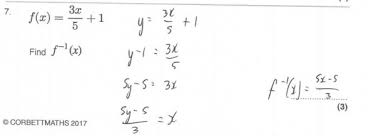 7. f(x) = 3x/5 + 1
y = 3x/5 + 1
Find f⁻¹(x)
y-1 = 3x/5
5y-5 = 3x
5y-5/3 = x
f⁻¹(x) = 5x-5/3
(3)
© CORBETTMATHS 2017